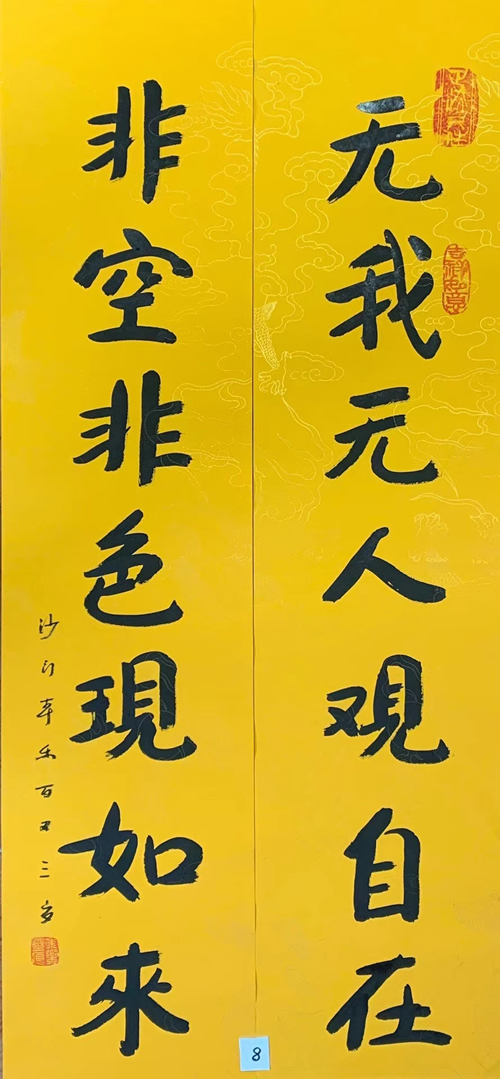 无我无人观自在
非空非色現如來
沙门百又三岁
吉祥如意
8